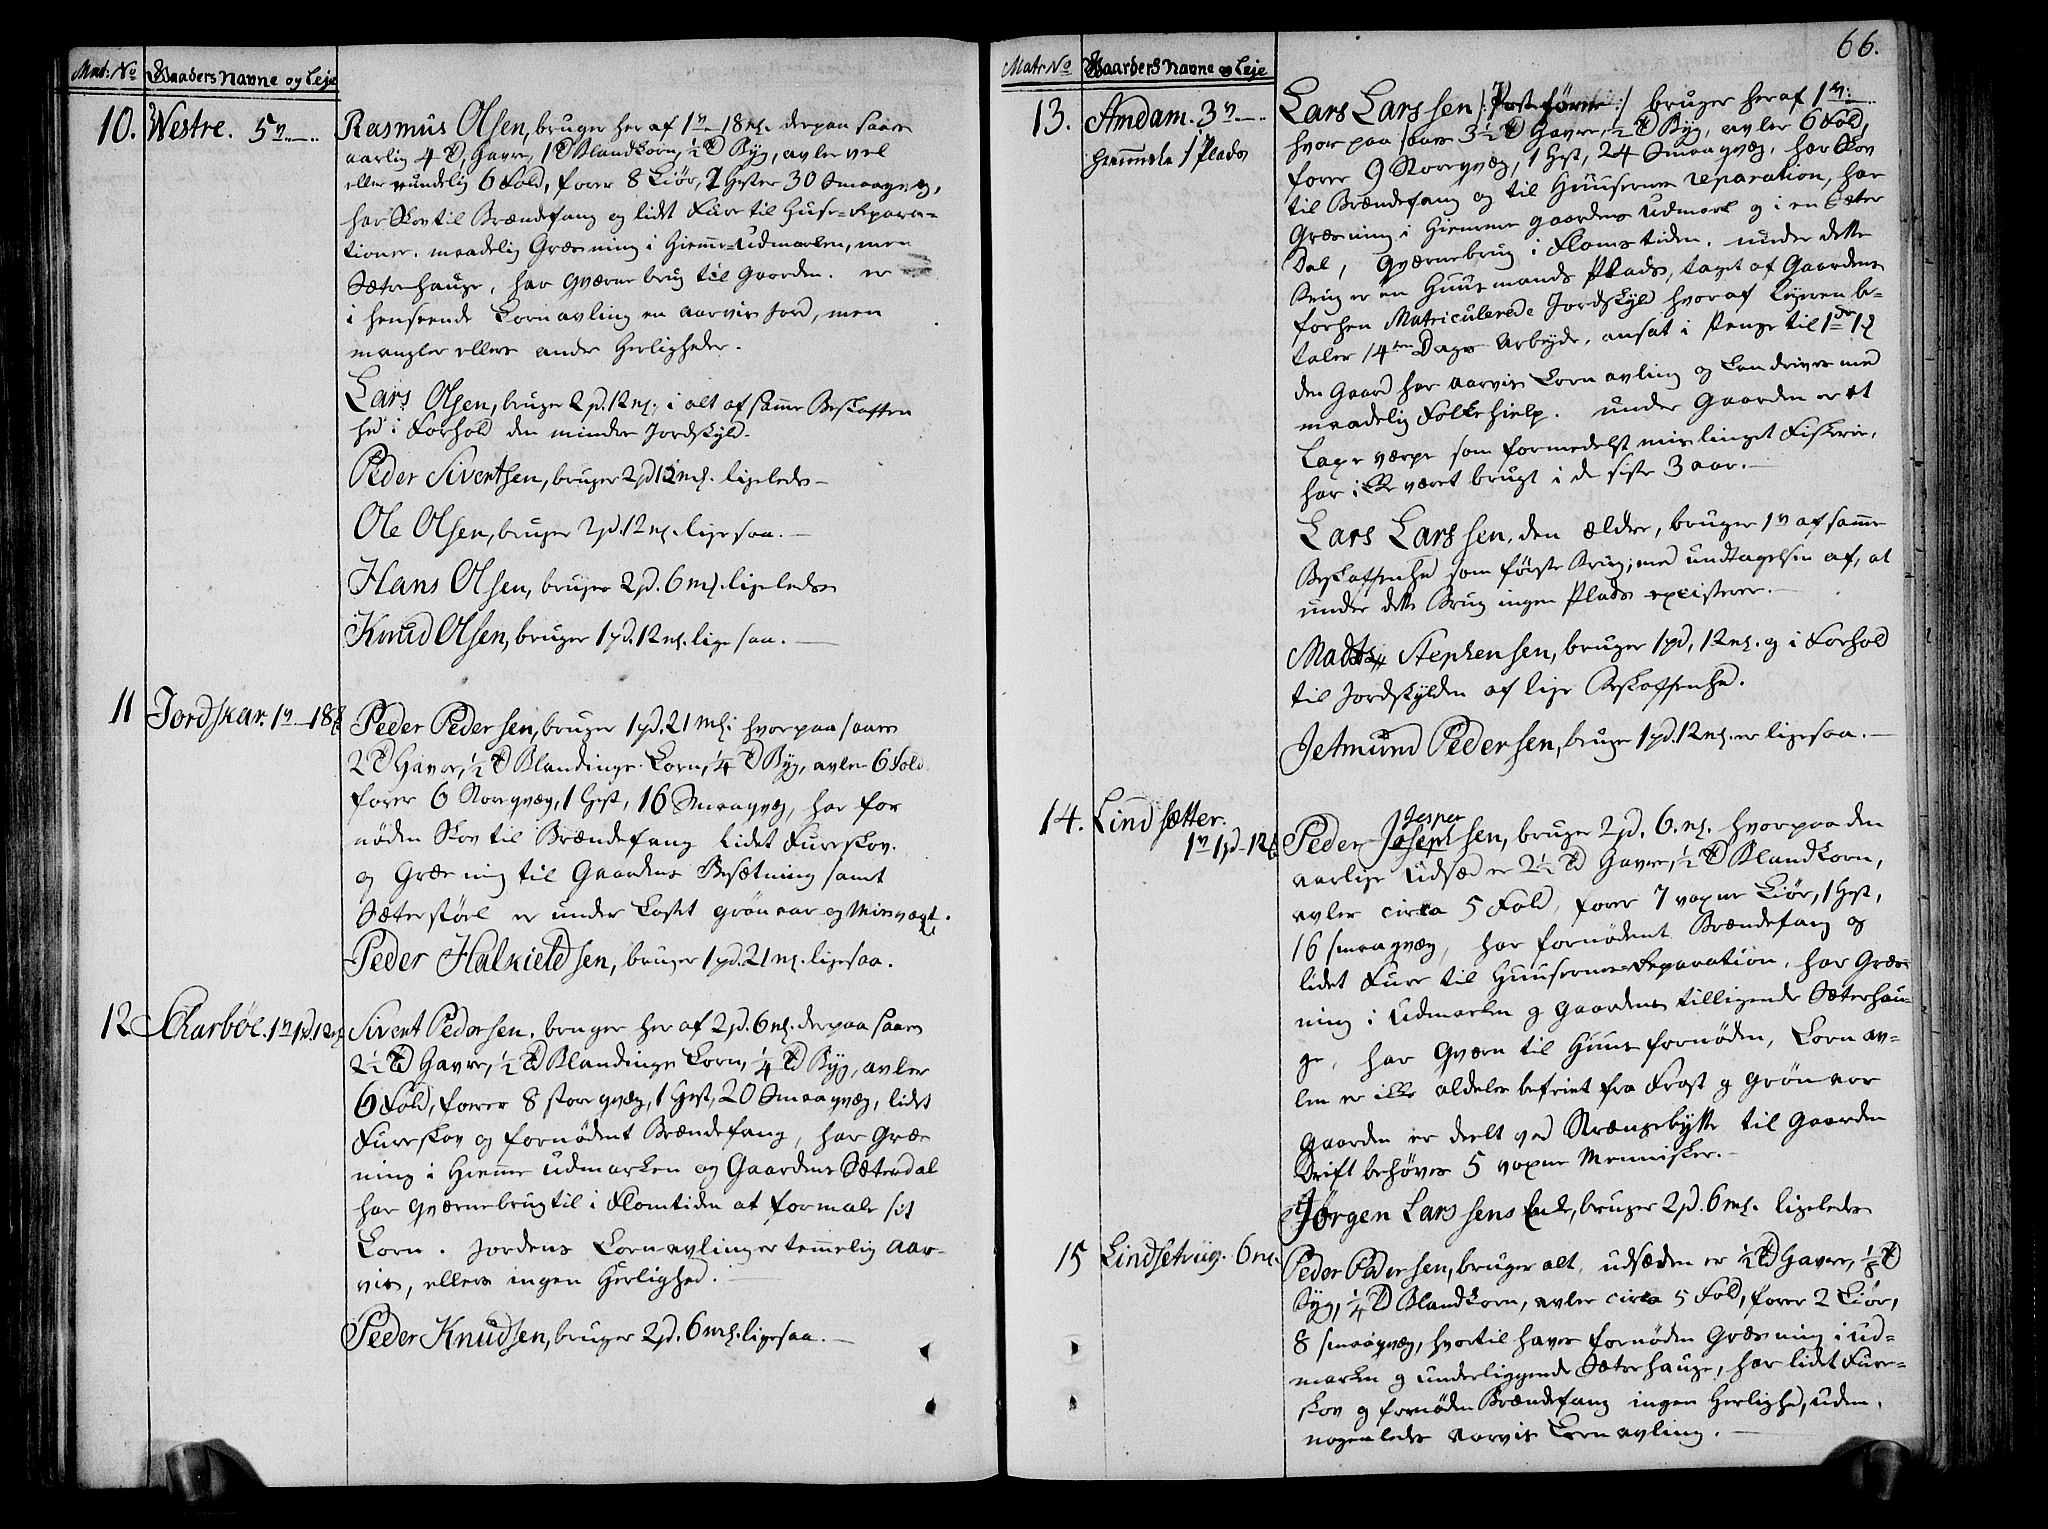 Mat: No Gaarders Navne og Leje
10. Westre. 5 v
Rasmus Olsen, bruger her af 1 v 18 mk. derpaa saaes
aarlig 4 Td, Havre, 1 Td Blandkorn, ½ Td Byg, avler vel
eller rundelig 6 Fold, foder 8 Kiør, 2 Hester 30 Smaaqvæg,
har Skov til Brændefang og lidt Fure til Huse-Repara-
tioner. maadelig Græsning i Hiemme-Udmarken, men
Sæterhauge, har Qværnebrug til Gaarden. er
i henseende Kornavling en aarvis Jord, men
mangler ellers andre Herligheder.
Lars Olsen, bruger 2 pd. 12 mk: i alt af samme Beskaffen
hed i Forhold den mindre Jordskyld.
Peder Sivertsen, bruger 2 pd 12 mk. ligeledes
Ole Olsen, bruger 2 pd. 12 mk. ligesaa.
Hans Olsen, bruger 2 pd. 6 mk. ligeledes
Knud Olsen, bruger 1 pd. 12 mk. ligesaa.
11 Jordskar. 1 v 18
Peder Pedersen, bruger 1 pd. 21 mk: hvorpaa saaes
2 Td Havre, ½ Td Blandings Korn, ¼ Td Byg, avler 6 Fold.
foder 6 Storqvæg, 1 Hest, 16 Smaaqvæg, har for
nøden Skov til Brændefang lidet Fureskov.
og Græsning til Gaardens Besætning samt
Sæterstøel er under Kastet grønaar og Misvægt.
Peder Halkieldsen, bruger 1 pd. 21 mk. ligesaa.
12 Skarbøe. 1 v 1 pd. 12 mk.
Sivert Pedersen, bruger her af 2 pd. 6 mk. derpaa saaes
2½ Td Havre, ½ Td Blandings Korn, ¼ Td Byg, avler
6 Fold, foder 8 storqvæg, 1 Hest, 20 Smaaqvæg, lidet
Fureskov og fornødent Brændefang, har Græs
ning i Hiemme Udmarken og Gaardens Sæterdal
har Qværnebrug til i Flomtiden at formale sit
Korn. Jordens Kornavling er temmelig aar-
vis, ellers ingen Herlighed.
Peder Knudsen, bruger 2 pd. 6 mk. ligesaa.
66.
Matr No Gaarders Navne og Leje
13. Amdam. 3 v
1 Plads
Lars Larssen /: Postefører :/ bruger her af 1 v:
hvor paa saaes 3½ Td Havre, ½ Td Byg, avler 6 Fold,
foder 9 Storeqvæg, 1 Hest, 24 Smaaqvæg, har Skov
til Brændefang og til Huusernes reparation, har
Græsning i Hiemme gaardens Udmark og i en Sæter
Dal, Qværnebrug i Flomstiden. under dette
Brug er en Huusmands Plads, taget af Gaardens
forhen Matriculerede Jordskyld hvoraf Ejeren be-
taler 14ten Dags Arbejde, ansat i Penge til 1 rd 1
den Gaard har aarvis Kornavling og kan drives med
maadelig Folkehielp. under Gaarden er et
Laxe værpe som formedelst mislinget Fiskerie,
har ikke været brugt i de siste 3 aar.
Lars Larssen, den ældre, bruger 1 v af samme
Beskaffenhed som første Brug; med undtagelsen af, at
under dette Brug ingen Plads existerer.
Mads Stephensen, bruger 1 pd, 12 mk. og i Forhold
til Jordskylden af lige Beskaffenhed.
Jetmund Pedersen, bruger 1 pd. 12 mk. er ligesaa.
14. Lindsætter.
1 v 1 pd 12
Jesper
Peder Josephsen, bruger 2 pd. 6 mk. hvorpaa den
aarlige Udsæd er 2½ Td Havre, ½ Td Blandkorn,
avler circa 5 Fold, foder 7 voxne Kiør, 1 Hest,
16 smaaqvæg, har fornødent Brændefang og
lidet Fure til Huusernes Reparation, har Græs-
ning i Udmarken og Gaardens tilligende Sæterhau-
ge, har Qværn til Huus fornøden, Kornav-
len er ikke aldeles befriet fra Frost og Grønaar
Gaarden er deelt ved Strængebytte til Gaarden
Drift behøves 5 voxne Mennisker.
Jørgen Larssens Enke, bruger 2 pd. 6 mk. ligeledes
15 Lindsetriig. 6 mk.
Peder Pedersen, bruger alt, udsæden er ½ Td Havre, ⅛ Td
Byg, ¼ Td Blandkorn, avler circa 5 Fold, foder 2 Kiør,
8 smaaqvæg, hvortil haves fornøden Græsning i Ud-
marken og underliggende Sæterhauge, har lidet Fure-
skov og fornøden Brændefang ingen Herlighed, uden
nogenledes aarvis Kornavling.